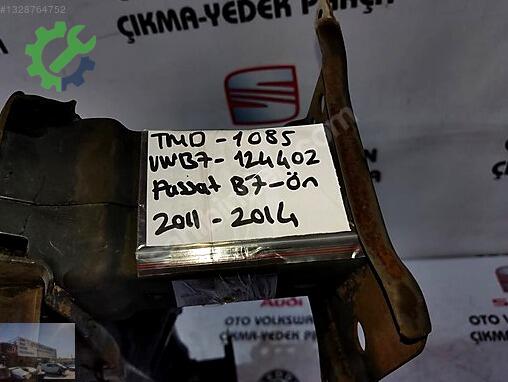 #1328764752
ÇIKMA-YEDEK PARÇA
TMD-1085
VWB7-124402
Passat B7-Ön
2011-2014
AUDI
OTO VOLKSWA
ÇIKMA-YEDEK
OTO VOLKSW
ÇIKMA-YEDEK